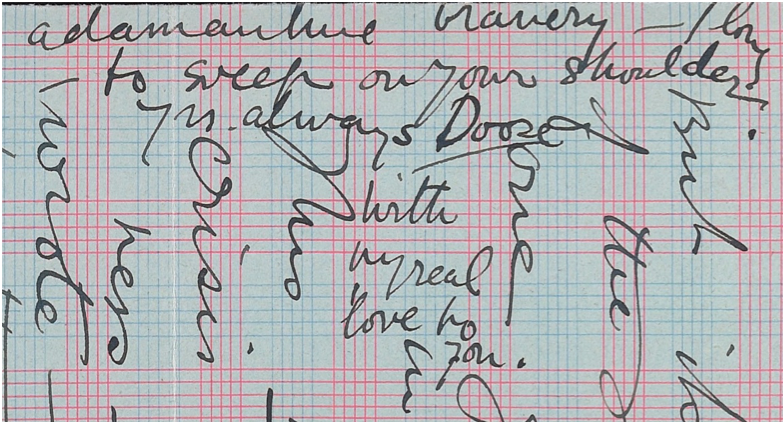 adamantine bravery — I long
to sweep on your shoulder.
Yrs. always Dooze
with
my real
love to
you.
I wrote
hers
Crisis.
his
one
the
But